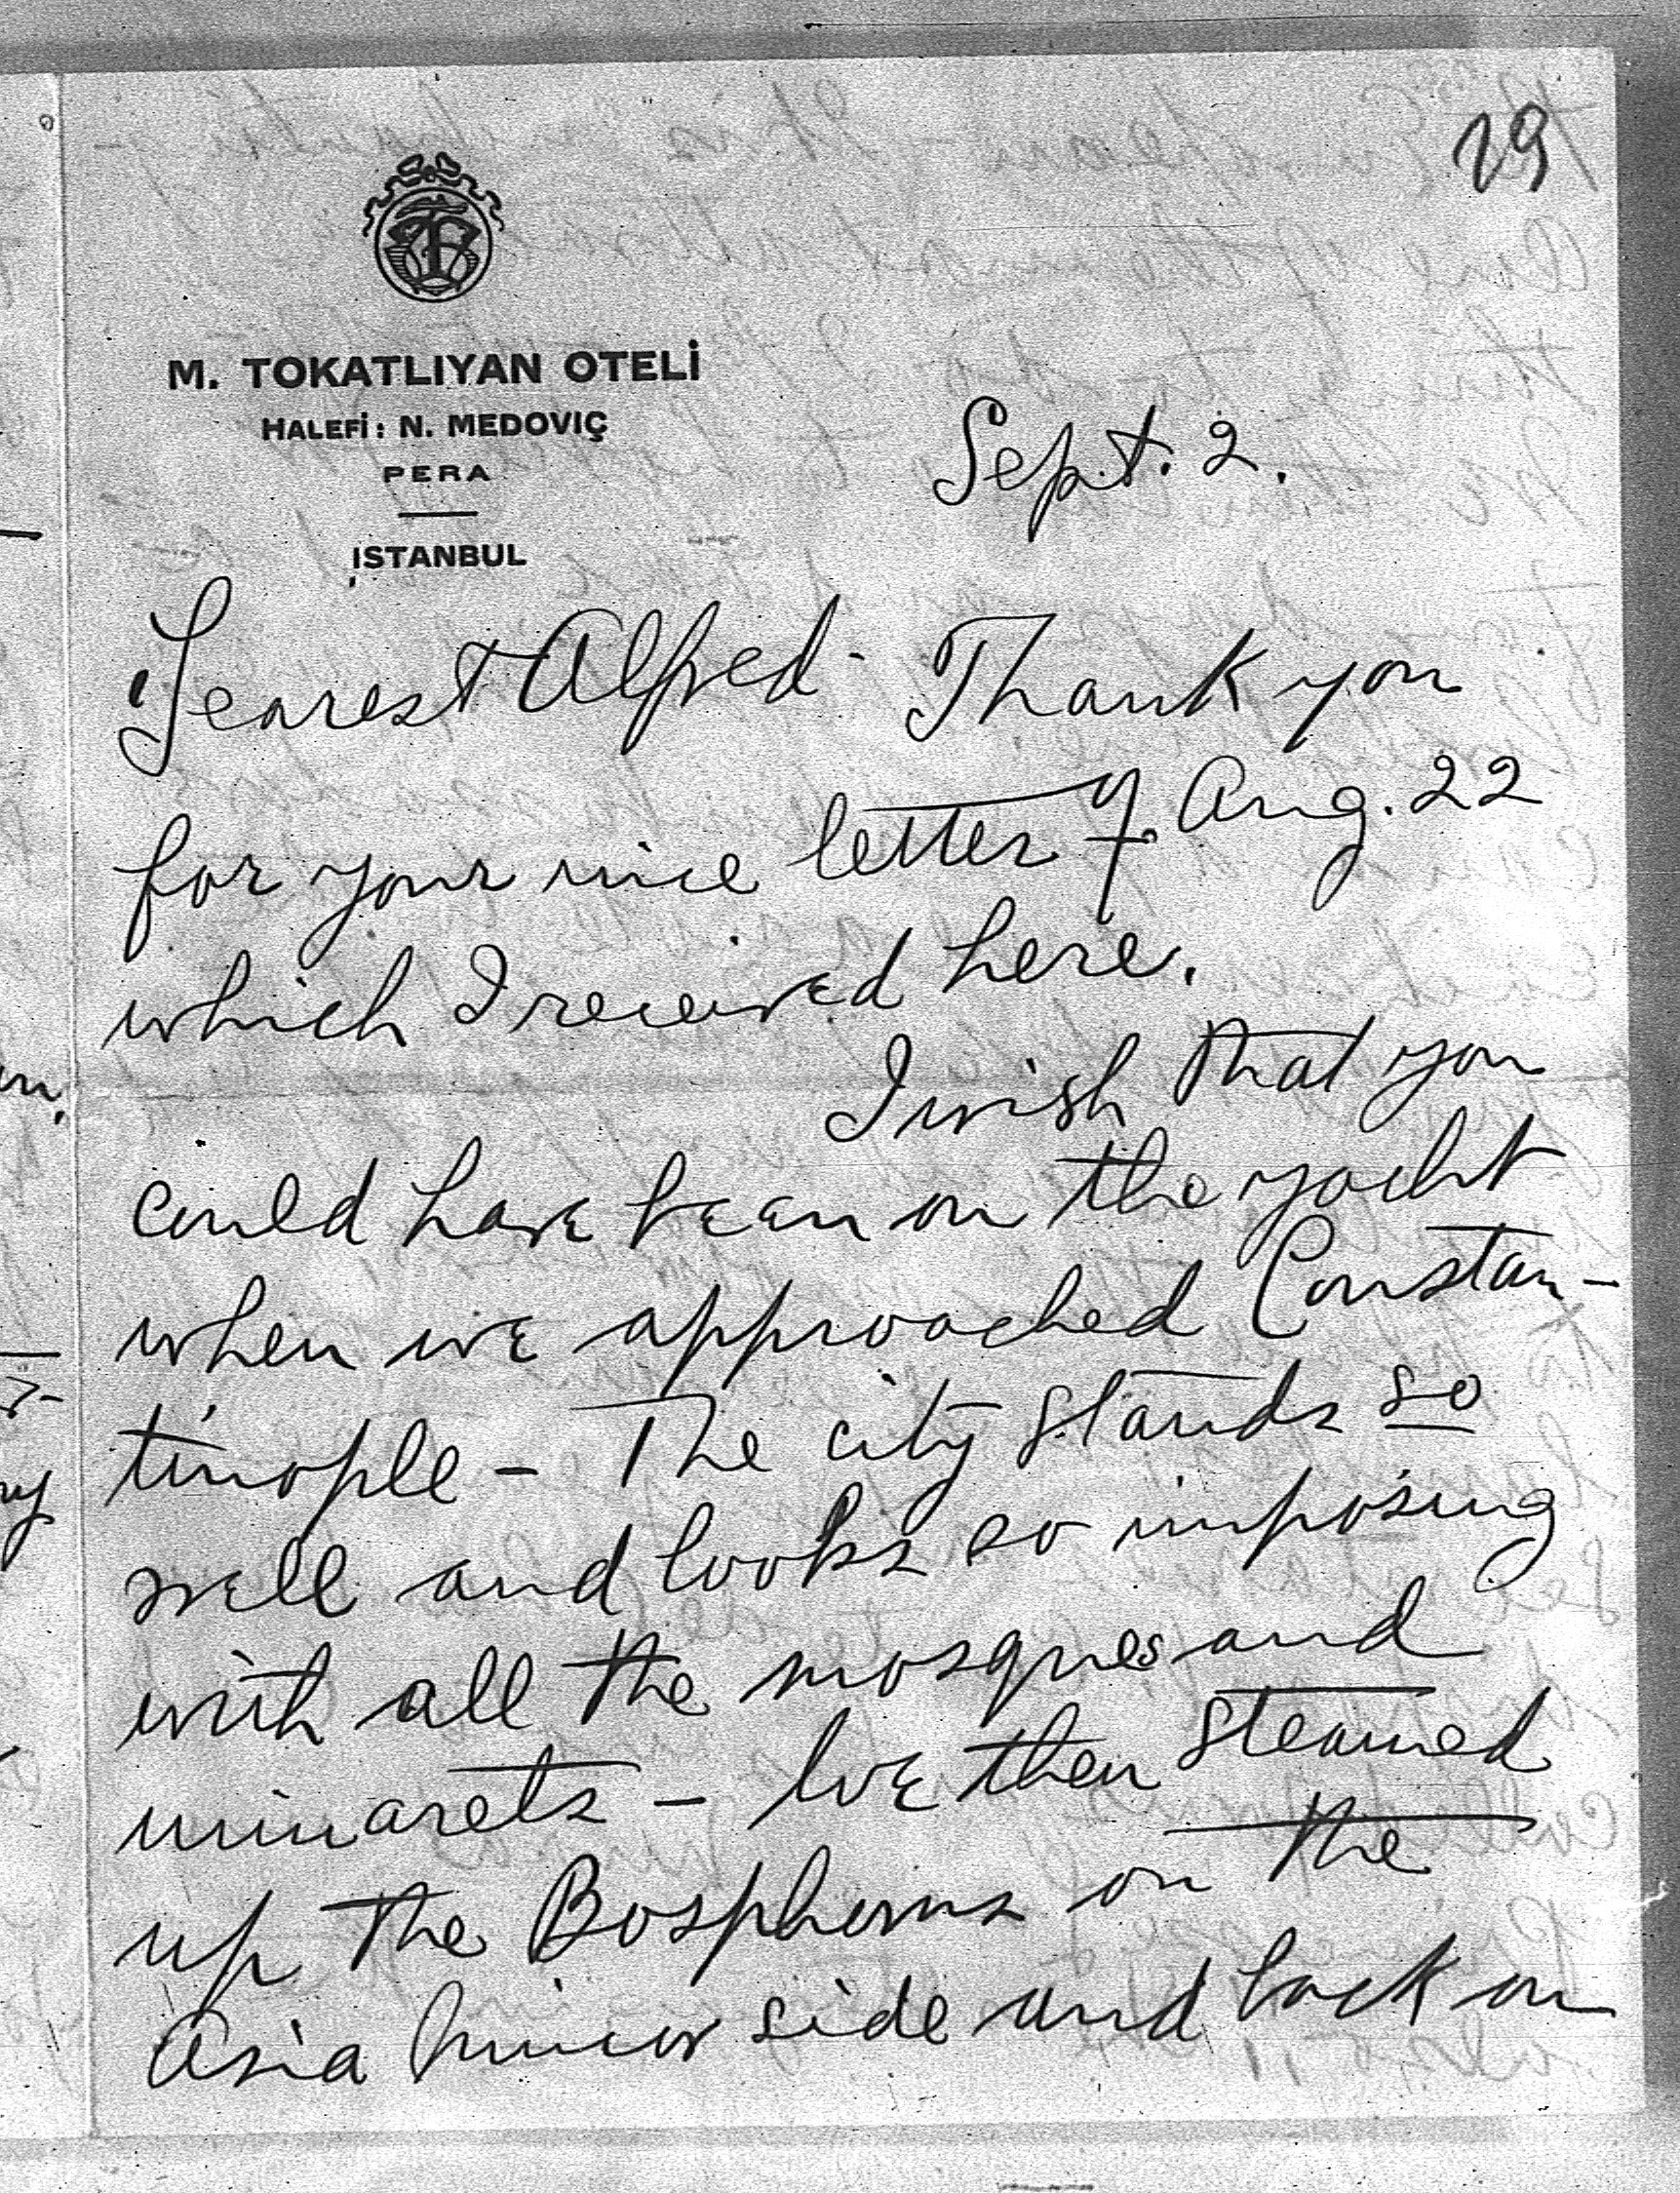 29
M. TOKATLIYAN OTELİ
HALEFİ: N. MEDOVIÇ
PERA
İSTANBUL
Sept. 2.
Dearest Alfred - Thank you
for your nice letter of Aug. 22
which I received here.
I wish that you
could have been on the yacht
when we approached Constan-
tinople - The city stands so
well and looks so imposing
with all the mosques and
minarets - We then steamed
up the Bosphorus on the
Asia Minor side and back on